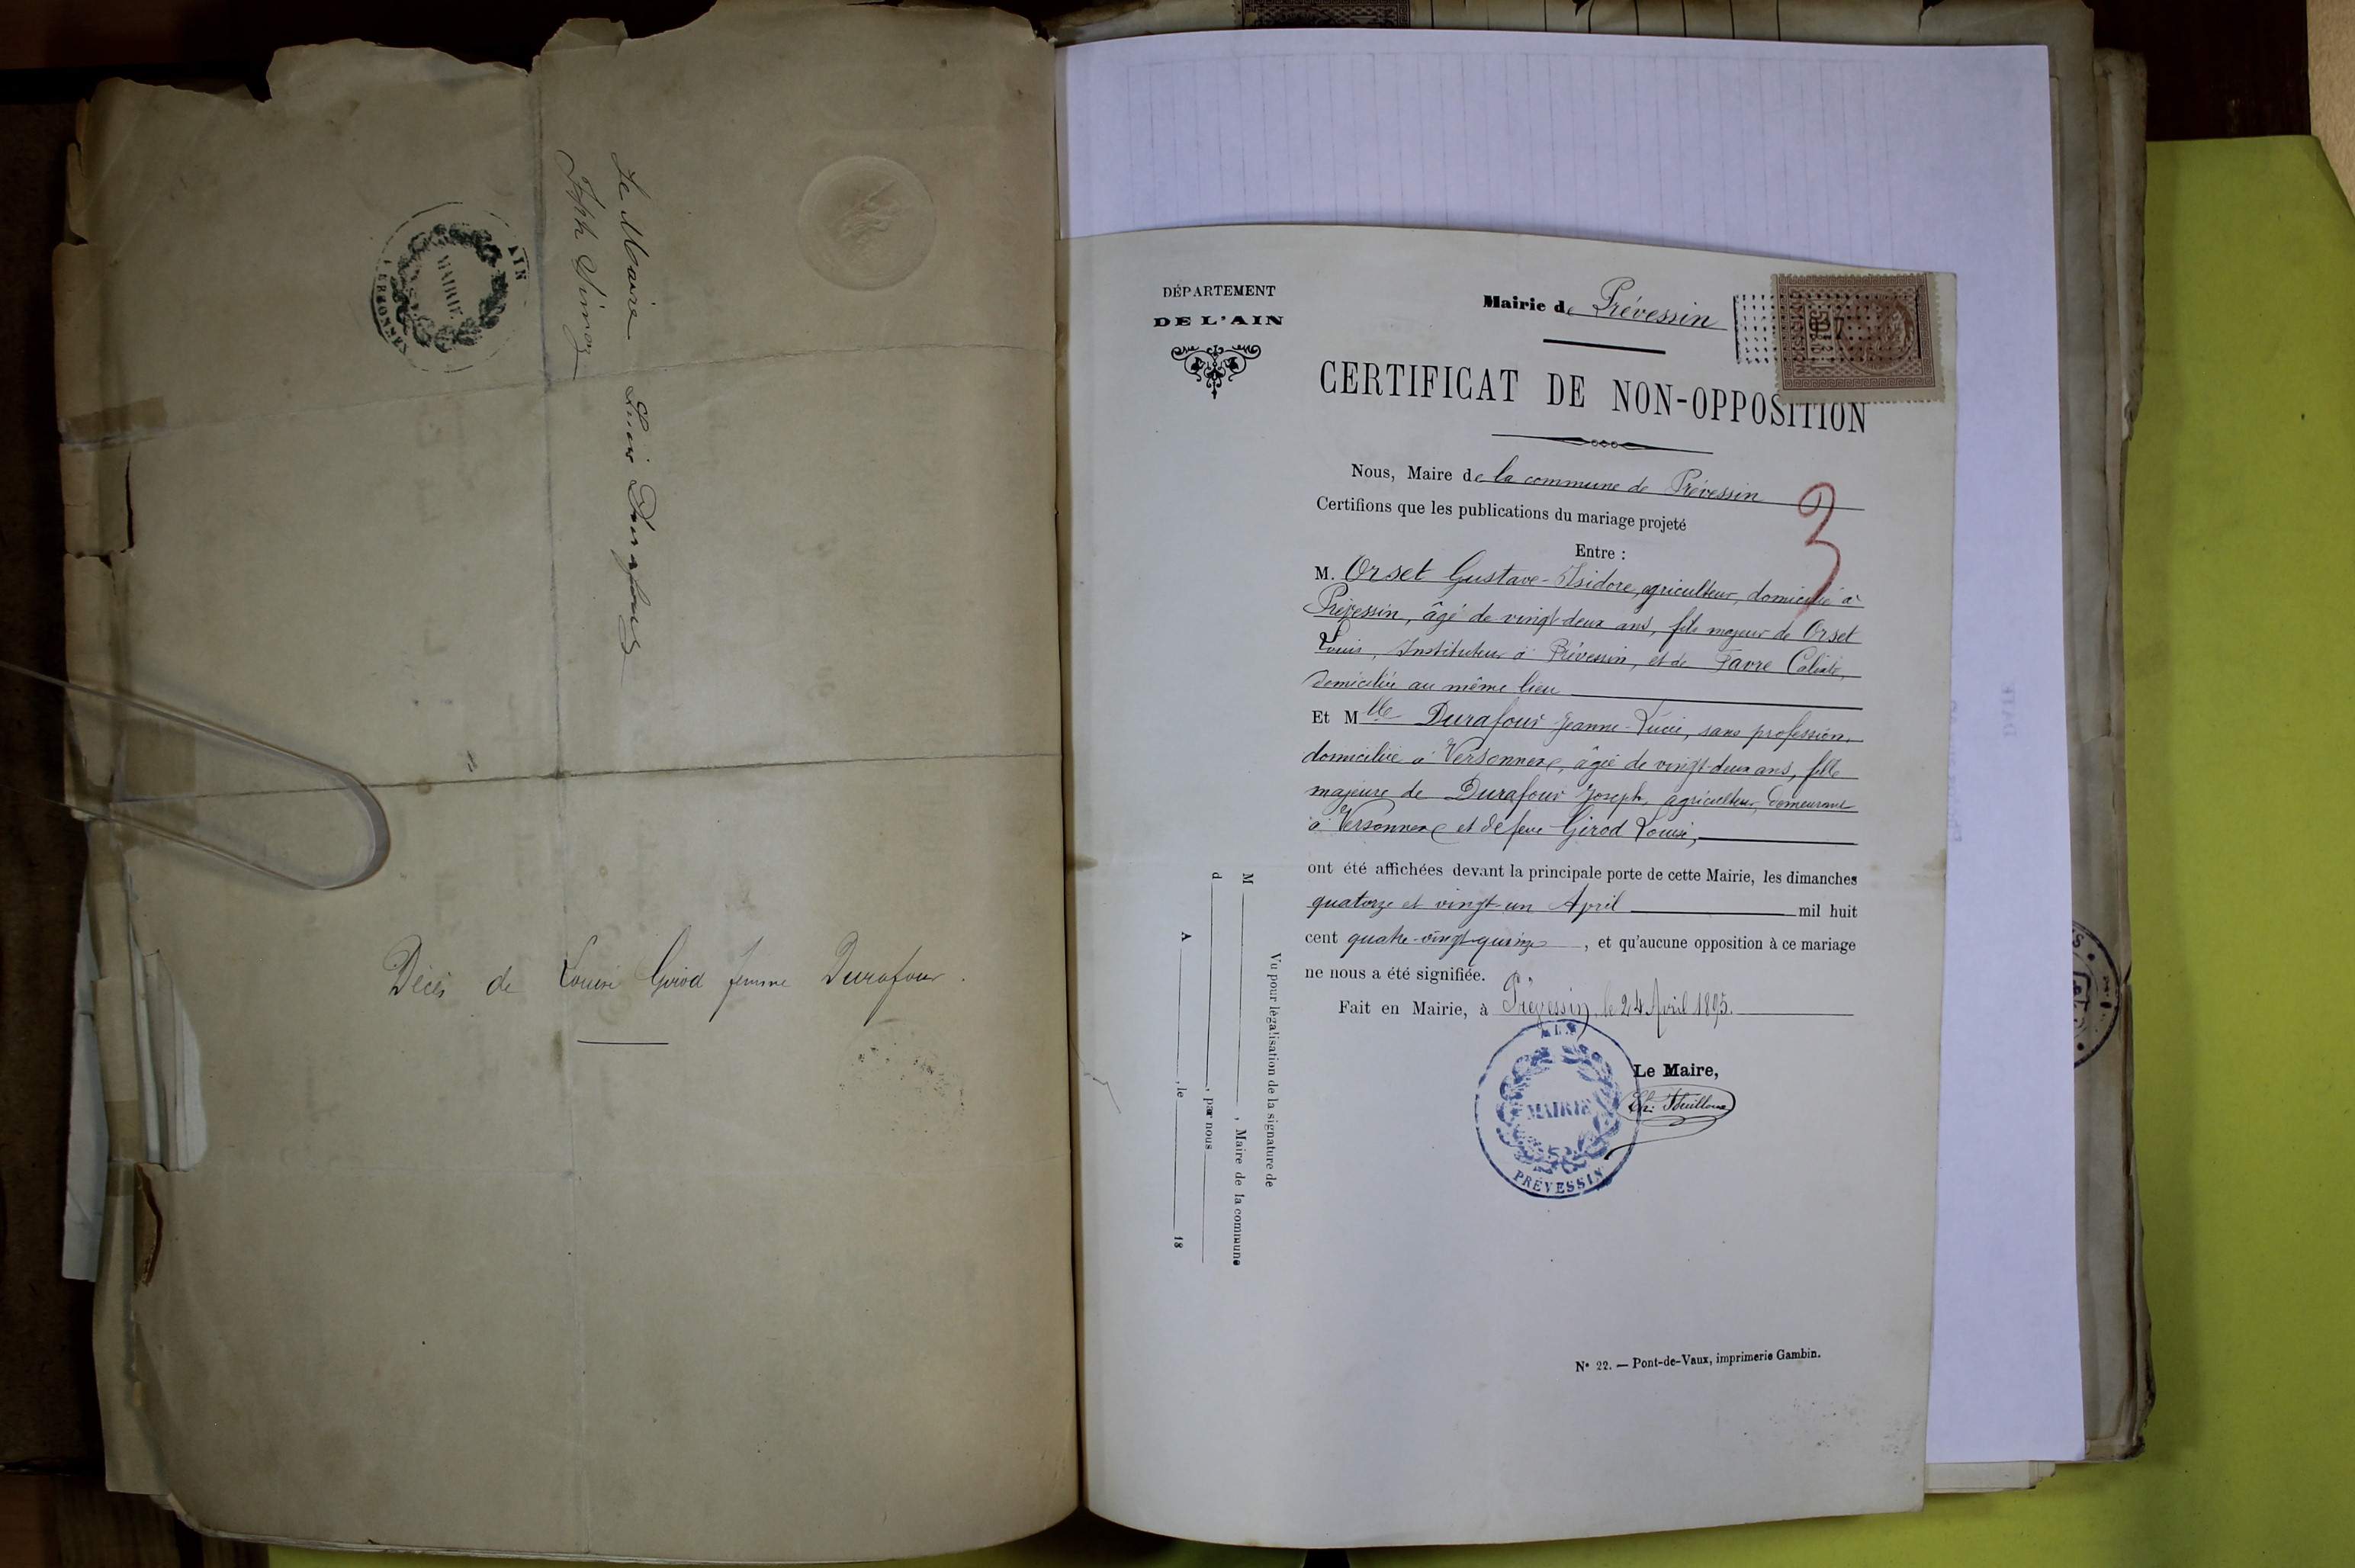 Le Maire
Louis Durafour
AIN
MAIRIE
VERSONNEX
Décès de Louise Girod femme Durafour.
DÉPARTEMENT
DE L'AIN
Mairie de Prévessin
CERTIFICAT DE NON-OPPOSITION
Nous, Maire de la commune de Prévessin
3
Certifions que les publications du mariage projeté
Entre :
M. Orset Gustave-Isidore, agriculteur, domicilié à
Prévessin, âgé de vingt-deux ans, fils majeur de Orset
Louis, Instituteur à Prévessin, et de Favre
domiciliée au même lieu
Et Mlle Durafour Jeanne-Lucie, sans profession,
domiciliée à Versonnex, âgée de vingt-deux ans, fille
majeure de Durafour Joseph, agriculteur, demeurant
à Versonnex et de feue Girod Louise,
ont été affichées devant la principale porte de cette Mairie, les dimanches
quatorze et vingt-un April mil huit
cent quatre-vingt-quinze, et qu'aucune opposition à ce mariage
ne nous a été signifiée.
Fait en Mairie, à Prévessin, le 24 Avril 1895.
Le Maire,
AIN
MAIRIE
PRÉVESSIN
Vu pour légalisation de la signature de
M , Maire de la commune
d , par nous
A , le 18
N° 22. — Pont-de-Vaux, imprimerie Gambin.